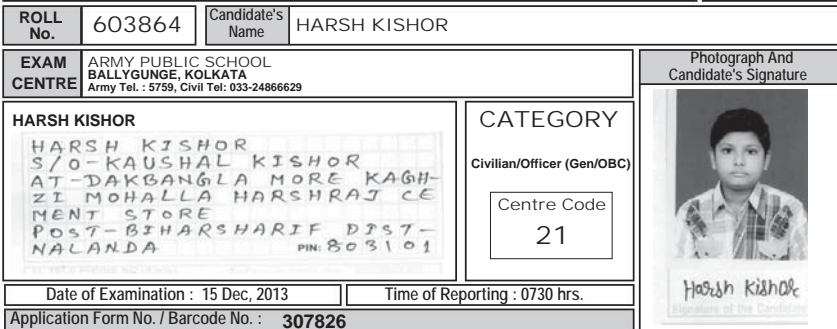 ROLL No. 603864 Candidate's Name HARSH KISHOR
EXAM CENTRE ARMY PUBLIC SCHOOL
BALLYGUNGE, KOLKATA
Army Tel. : 5759, Civil Tel: 033-24866629
Photograph And Candidate's Signature
HARSH KISHOR
HARSH KISHOR
S/O-KAUSHAL KISHOR
AT-DAKBANGLA MORE KAGH-
ZI MOHALLA HARSHRAJ CE
MENT STORE
POST-BIHARSHARIF DIST-
NALANDA PIN: 803101
CATEGORY
Civilian/Officer (Gen/OBC)
Centre Code
21
Harsh Kishor
Signature of the Candidate
Date of Examination : 15 Dec, 2013 Time of Reporting : 0730 hrs.
Application Form No. / Barcode No. : 307826